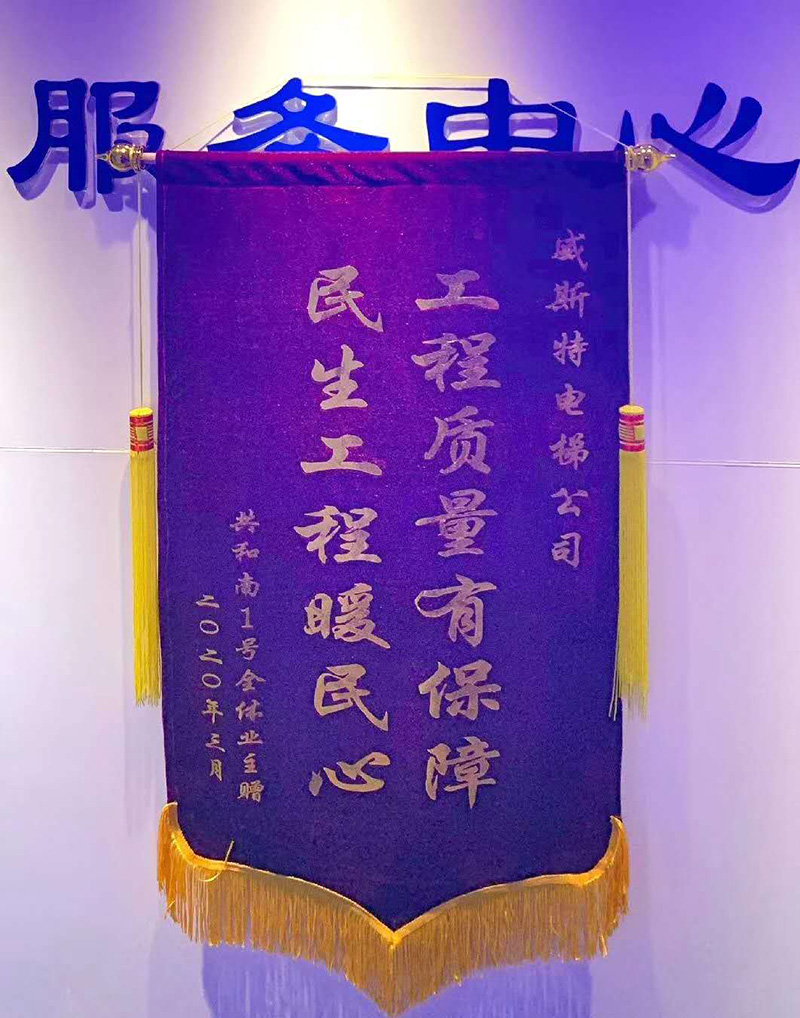 服务中心
威斯特电梯公司
工程质量有保障
民生工程暖民心
共和南1号全体业主赠
二〇二〇年三月